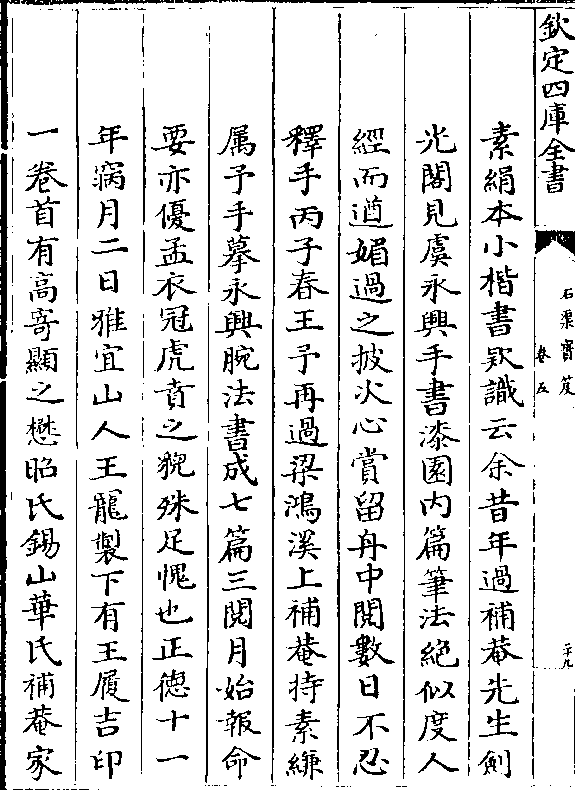 欽定四庫全書
石渠寳笈
卷五
二十九
素絹本小楷書欵識云余昔年過補菴先生劍
光閣見虞永興手書漆園内篇筆法絶似度人
經而遒媚過之披次心賞留舟中閱數日不忍
釋手丙子春王予再過梁鴻溪上補菴持素縑
属予手摹永興腕法書成七篇三閱月始報命
要亦優孟衣冠虎賁之貌殊足愧也正徳十一
年寎月二日雅宜山人王寵製下有王履吉印
一卷首有高寄顯之懋昭氏錫山華氏補菴家